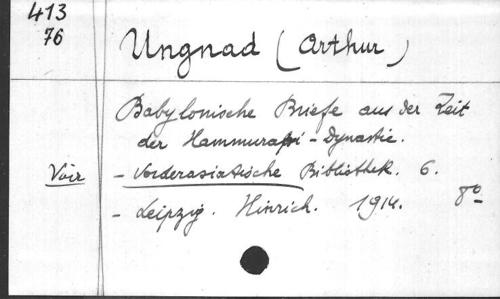 413
76
Ungnad (Arthur)
Babylonische Briefe aus der Zeit
der Hammurapi-Dynastie.
Voir - Vorderasiatische Bibliothek. 6.
- Leipzig. Hinrich. 1914. 8º